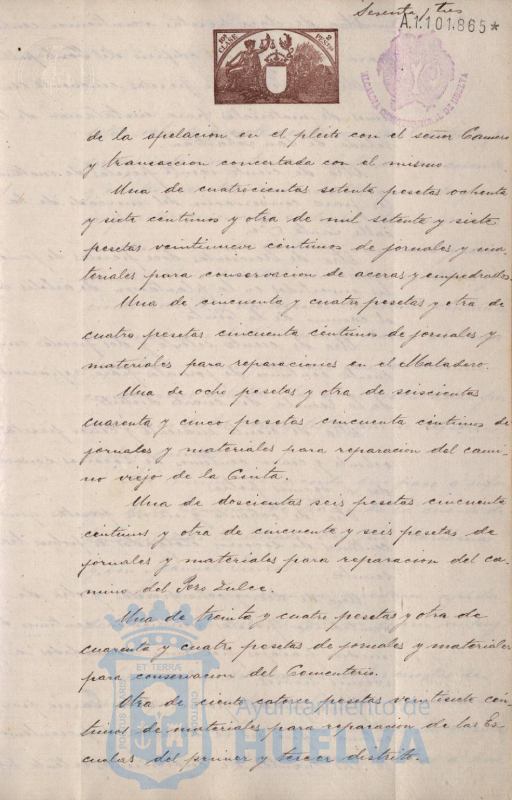 Sesenta y tres
A.1.101.865*
9ª CLASE
2 PESETAS
ALCALDIA CONSTITUCIONAL DE HUELVA
de la apelacion en el pleito con el señor Camero
y transaccion concertada con el mismo.
Una de cuatrocientas setenta pesetas ochenta
y siete céntimos y otra de mil setenta y siete
pesetas veintinueve céntimos de jornales y ma-
teriales para conservacion de aceras y empedrados.
Una de cincuenta y cuatro pesetas y otra de
cuatro pesetas cincuenta céntimos de jornales y
materiales para reparaciones en el Matadero.
Una de ocho pesetas y otra de seiscientas
cuarenta y cinco pesetas cincuenta céntimos de
jornales y materiales para reparacion del cami-
no viejo de la Cinta.
Una de doscientas seis pesetas cincuenta
céntimos y otra de cincuenta y seis pesetas de
jornales y materiales para reparacion del ca-
mino del Pozo Dulce.
Una de treinta y cuatro pesetas y otra de
cuarenta y cuatro pesetas de jornales y materiales
para conservacion del Cementerio.
Otra de ciento catorce pesetas veintisiete cén-
timos de materiales para reparacion de las Es-
cuelas del primer y tercer distrito.
PORTUS MARIS ET TERRÆ CUSTODIA
Ayuntamiento de
HUELVA